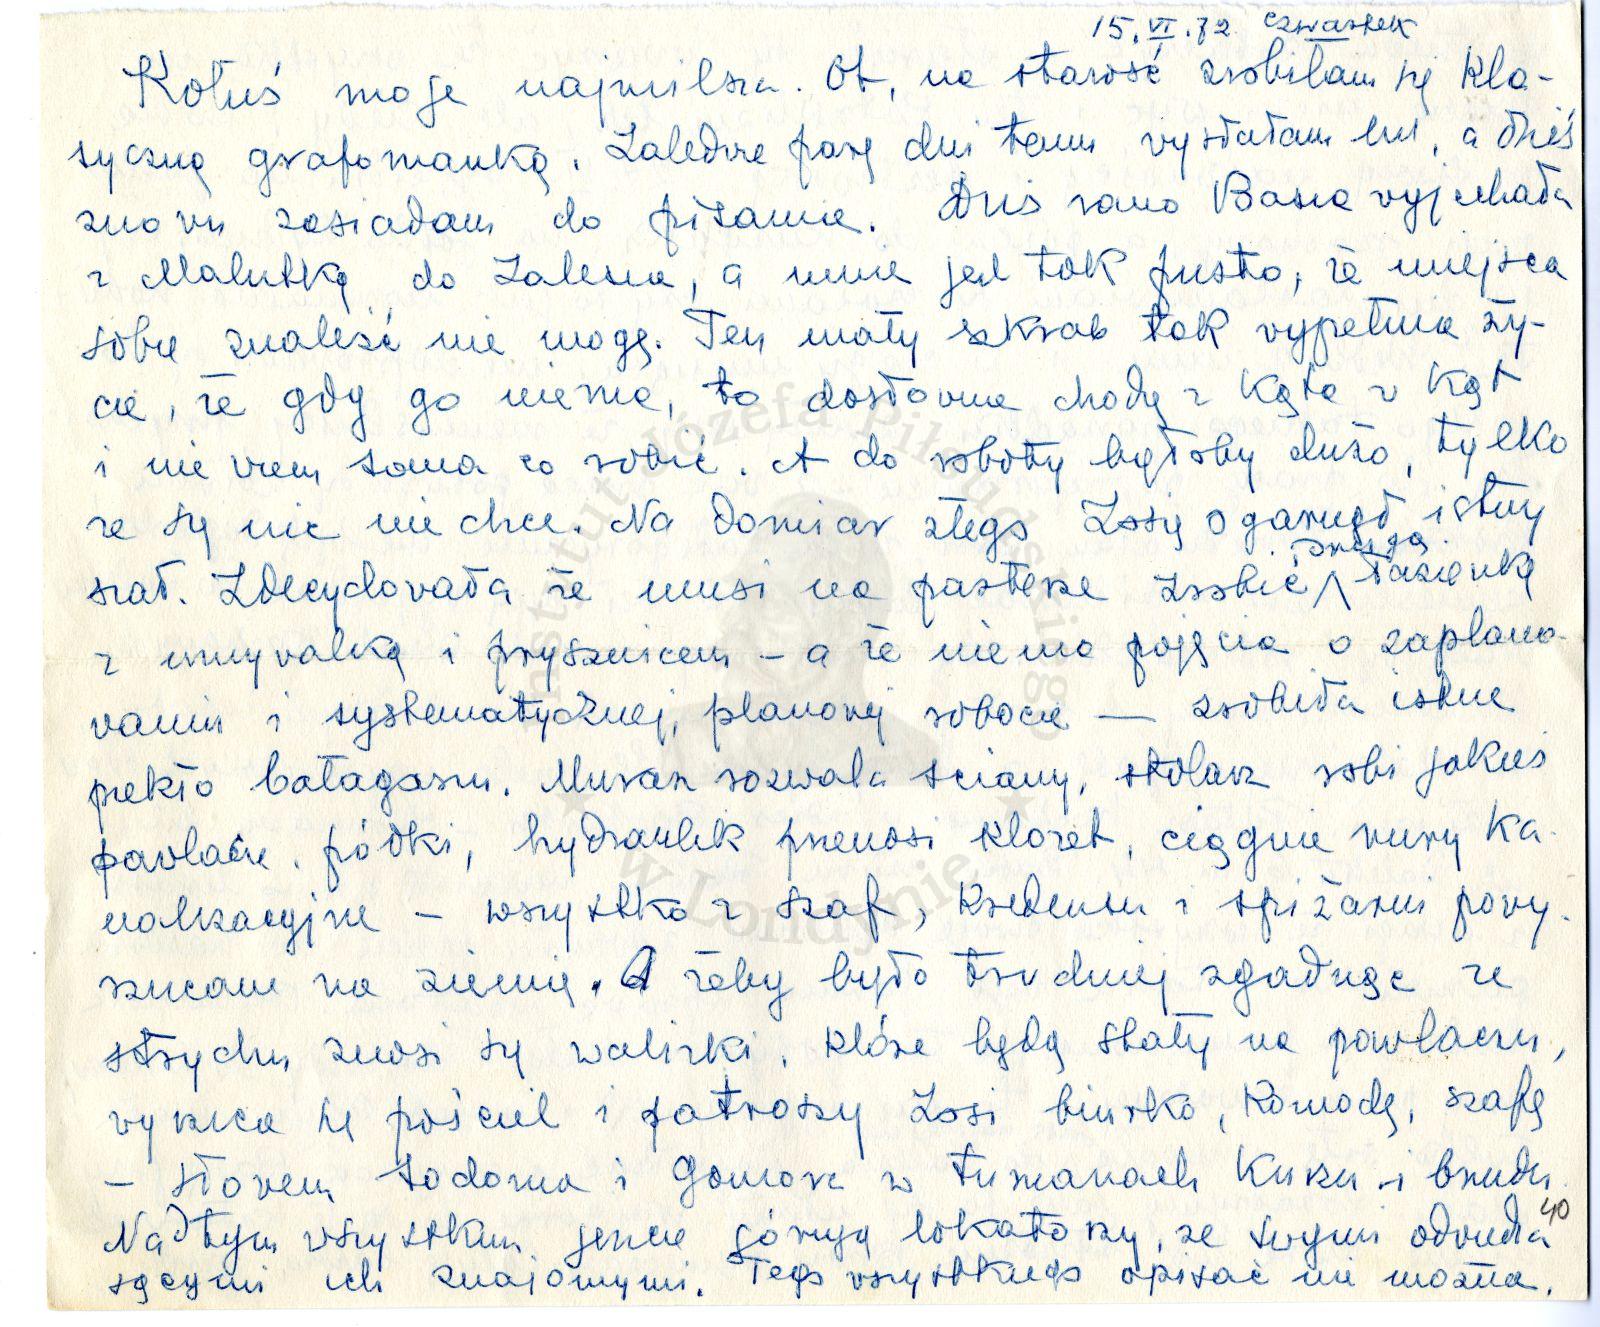 15.VI.72 czwartek
Kotuś moje najmilsze. Ot, na starość zrobiłam się kla-
syczną grafomanką. Zaledwie parę dni temu wysłałam list, a dziś
znowu zasiadam do pisania. Dziś rano Basia wyjechała
z Malutką do Zalesia, a mnie jest tak pusto, że miejsca
sobie znaleźć nie mogę. Ten mały szkrab tak wypełnia ży-
cie, że gdy go nie ma, to dosłownie chodzę z kąta w kąt
i nie wiem sama co robić. A do roboty byłoby dużo, tylko
że się nic nie chce. Na domiar złego Zosię ogarnął istny
szał. Zdecydowała że musi na parterze zrobić drugą łazienkę
z umywalką i prysznicem – a że nie ma pojęcia o zaplano-
waniu i systematycznej, planowej robocie — zrobiła istne
piekło bałaganu. Murarz rozwala ściany, stolarz robi jakieś
pawlacze, półki, hydraulik przenosi klozet, ciągnie rury ka-
nalizacyjne – wszystko z szaf, kredensu i spiżarni powy-
rzucane na ziemię. A żeby było trudniej zgadnąć ze
strychu znosi się walizki, które będą stały na pawlaczu,
wyrzuca się pościel i patroszy Zosi biurko, komodę, szafę
– słowem sodoma i gomora w tumanach kurzu i brudu.
Nad tym wszystkim jeszcze górują lokatorzy, ze swymi odwiedza
jącymi ich znajomymi. Tego wszystkiego opisać nie można.
40
Instytut Józefa Piłsudskiego
w Londynie